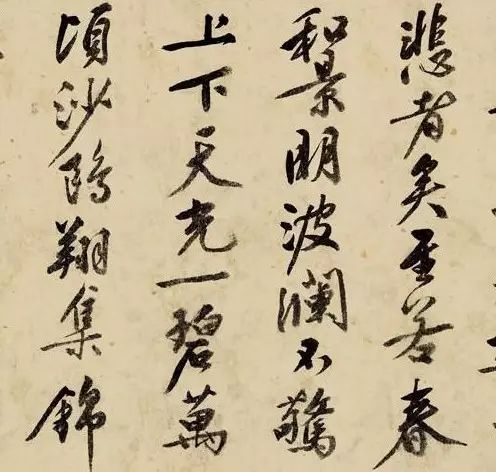 悲者矣至若春
和景明波瀾不驚
上下天光一碧萬
頃沙鷗翔集錦